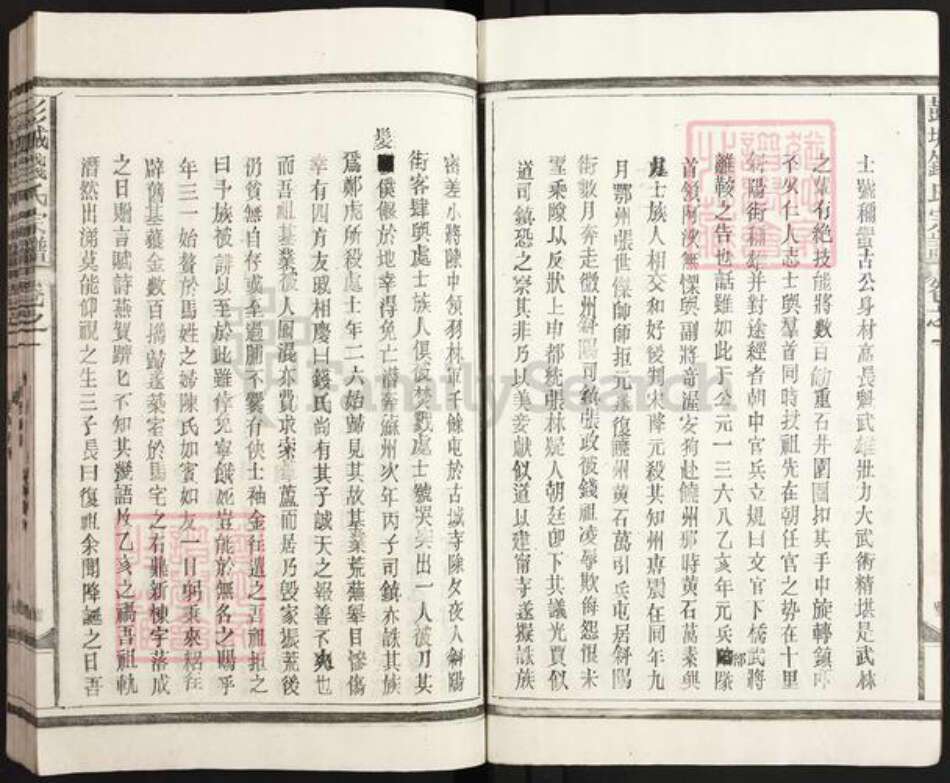 士號稱學古公身材高長斛武雄壯力大武術精堪是武林
之輩有絕技能將數百觔重石井圍圈扣其手中旋轉鎮
不少仁人志士與羣首同時扶祖先在朝任官之势在十里
斜陽街稱雄并對途經者朝中官兵立規曰文官下橋武將
離鞍之告世話雖如此于公元一二六八乙亥年元兵陷隊
首領阿汝無慄與副將奇渥安狗赴饒州那時黃石萬素與
處士族人相交和好後制宋降元殺其知州唐震在同年九
月鄂州張世傑師師拒元 復饒州黃石萬引兵屯居斜陽
街數月奔走徽州斜陽司鎮張政被錢祖凌辱欺侮怨恨未
雪乘隙以反狀上申都統張林疑人朝廷卽下其議光賈似
道司鎮恐之察其非乃以美妾獻似道以建甯寺遂擬誅族
密差小將陳中領羽林軍千餘屯於古城寺除夕夜入斜陽
街客肆與處士族人俱 處士號哭突出一人被刀其
髮 僕偃於地幸得免亡潛奔蘇州次年丙子司鎮亦誅其族
爲鄭虎所殺處士年二六始歸見其故基業荒蕪舉目慘傷
幸有四方友戚相慶曰錢氏尚有其子誠天之報善不爽也
而吾祖基業被人風混亦費求索 蘆而居乃毀家振荒後
仍貧無自存或至過 不 有俠士袖金往遺之吾祖拒之
曰予族被誹以至於此雖倖免寧餓死豈能於無名之賜乎
年三一始贅於馬姓之 陳氏如賓如友一日 乘來
辟舊基藏金數百攜歸遂築室於馬宅之右鼎新棟宇落成
之日贈言賦詩燕賀躋匕不知其幾語及乙亥之禍吾祖軌
潛然出涕莫能仰視之生三子長曰復 余聞降誕之日吾
彭城錢氏宗譜
卷之一